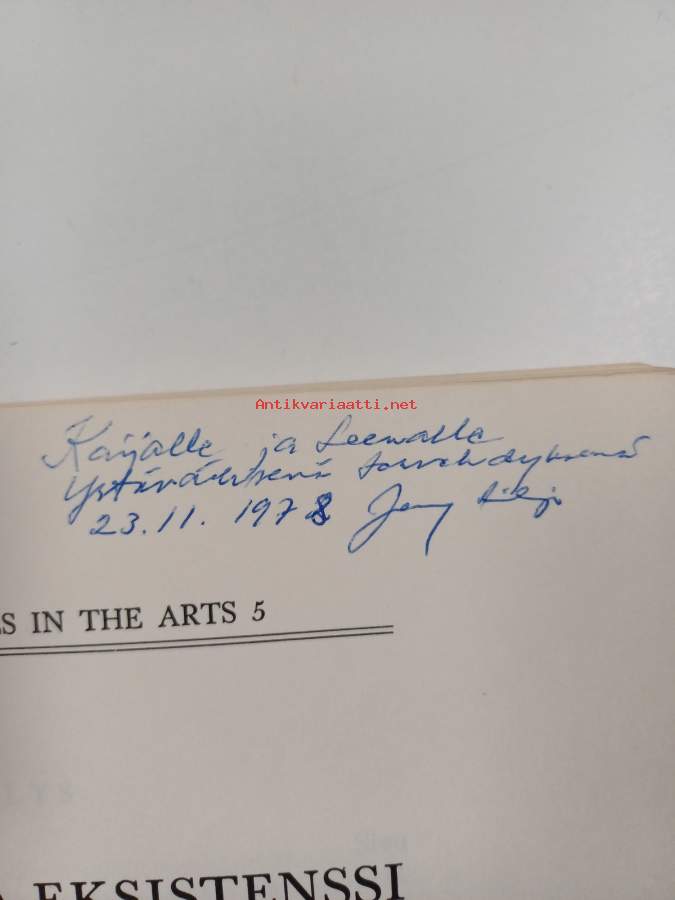 Antikvariaatti.net
Kaijalle ja Leenalle
Ystävällisenä tervehdyksenä
23.11. 1978
ES IN THE ARTS 5
LYS
EKSISTENSSI